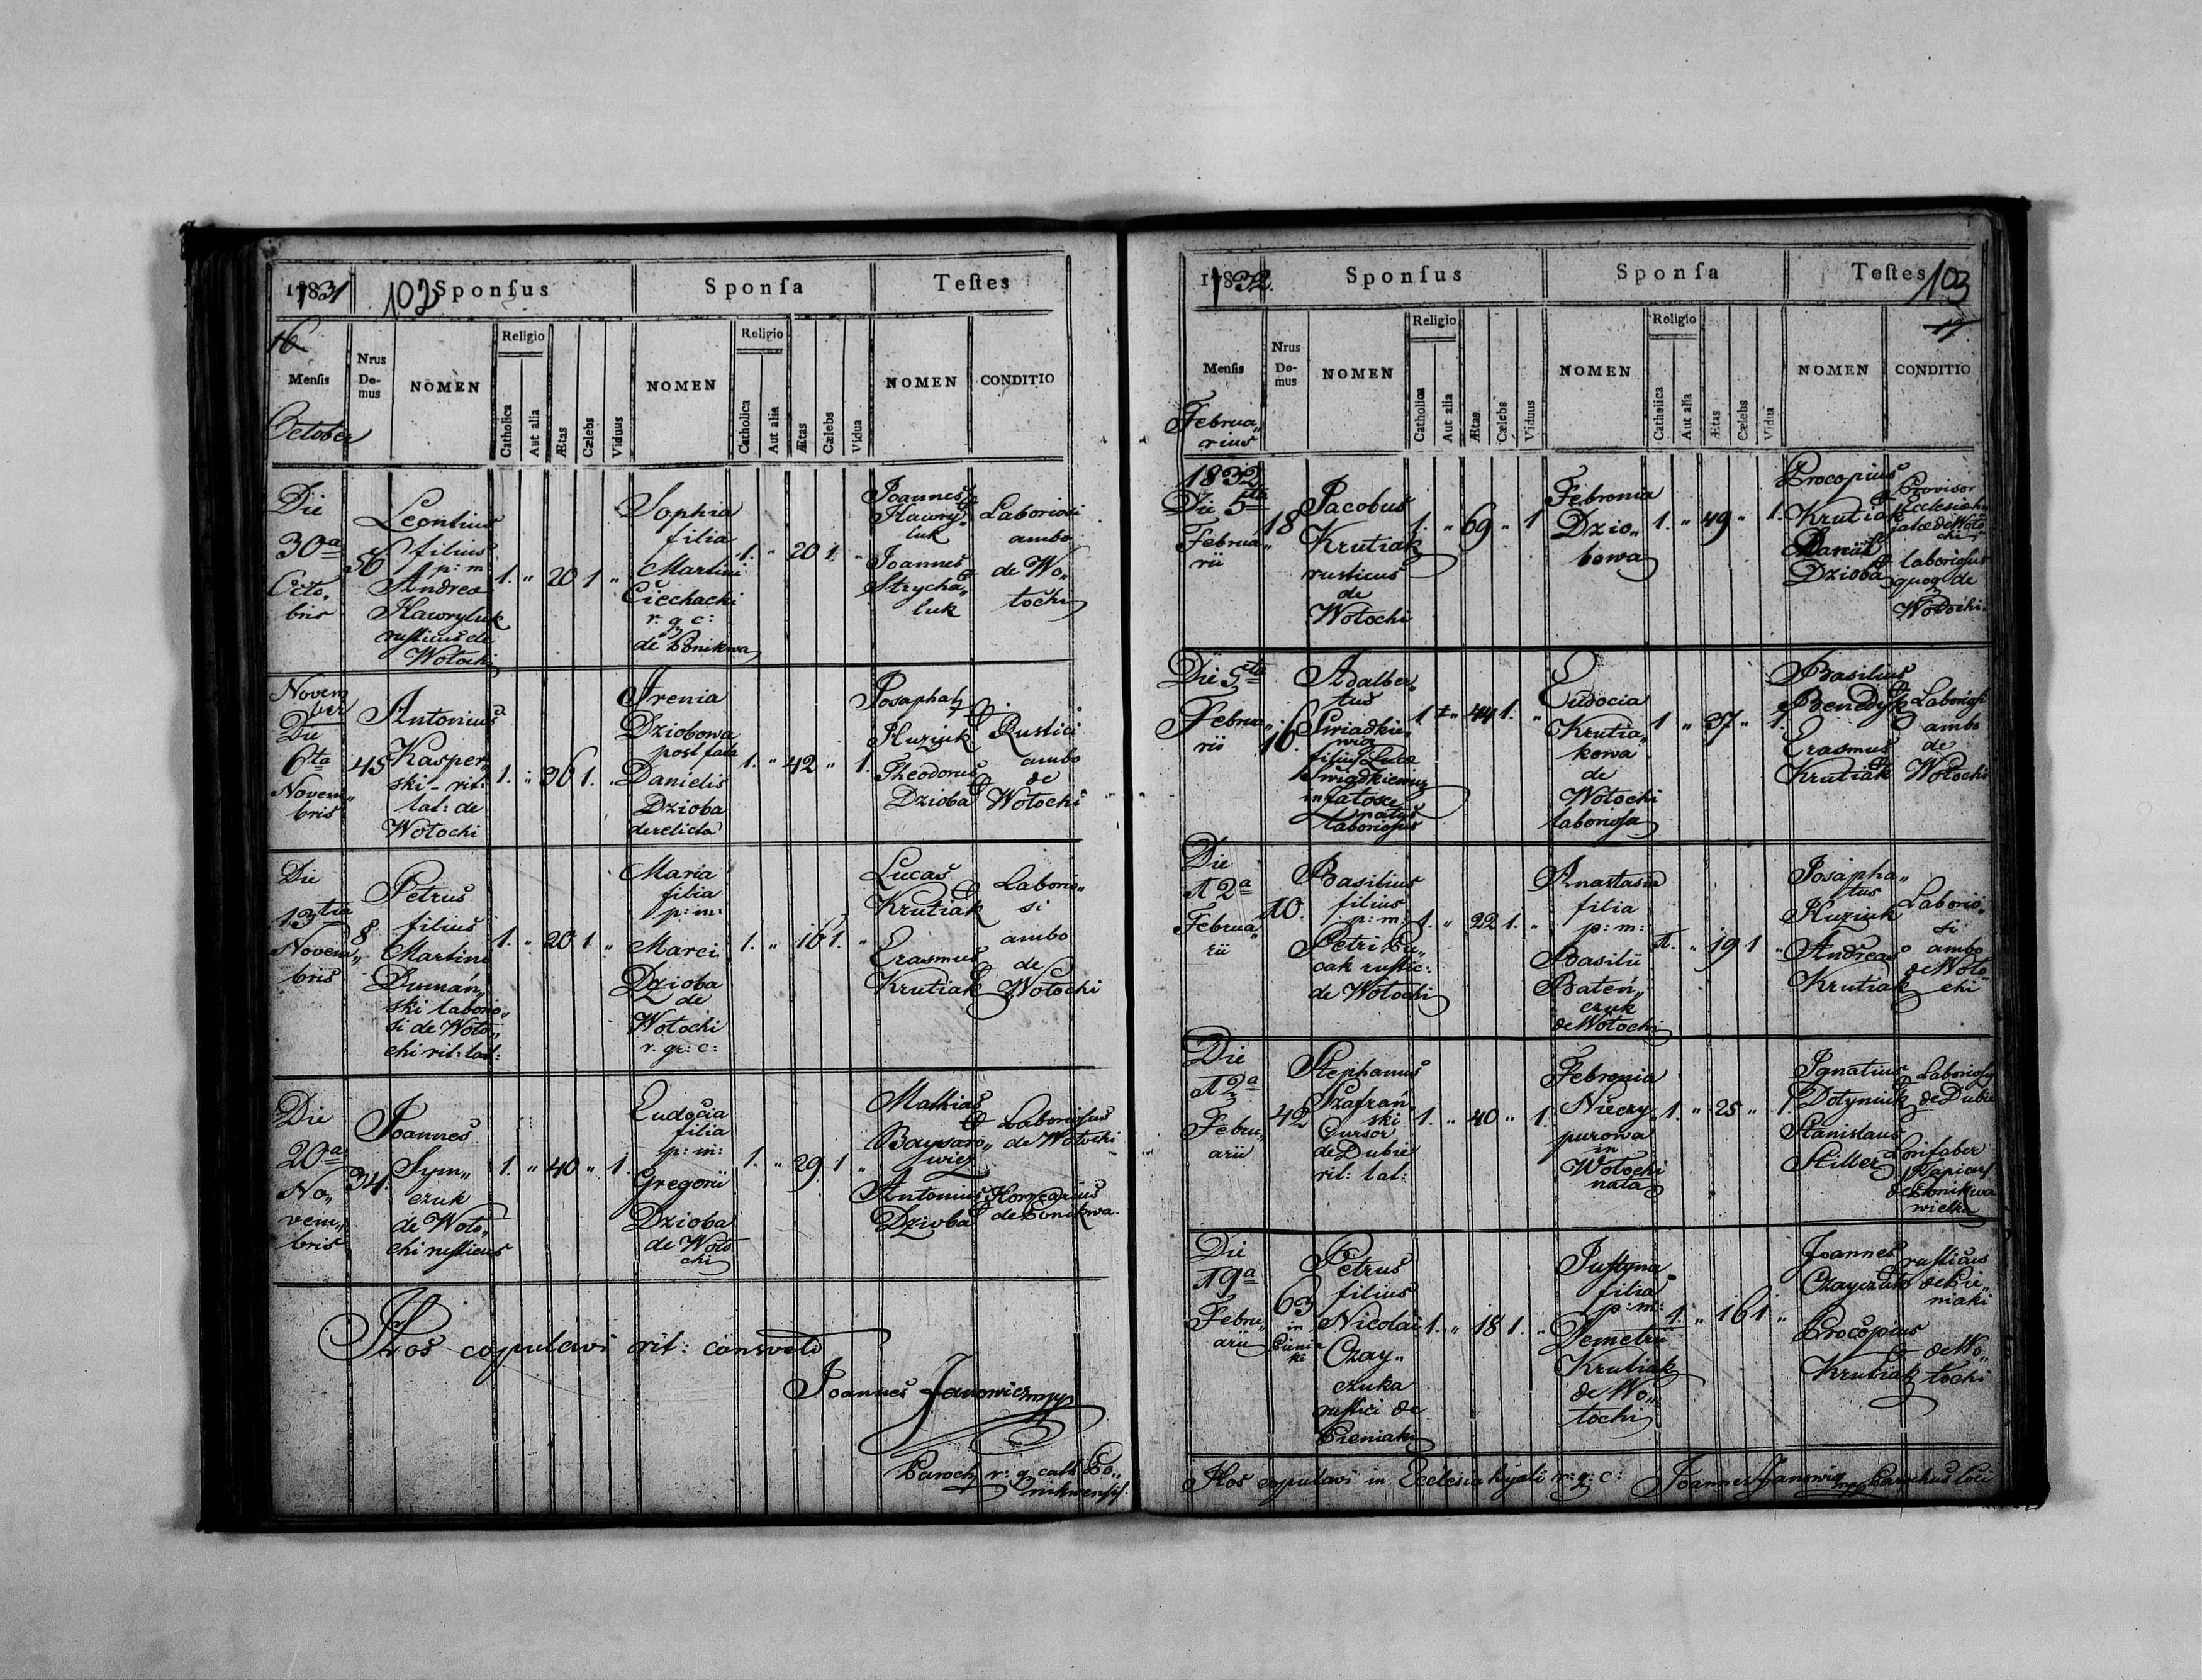 1831 102 Sponsus Sponsa Testes
16
Mensis Nrus Domus NOMEN Religio Catholica Aut alia Ætas Cælebs Viduus NOMEN Religio Catholica Aut alia Ætas Cælebs Vidua NOMEN CONDITIO
October
Die
30a
Octo„
bris
56
Leontius
filius
p: m
Andrea
Hawryluk
rusticus de
Wołochi
1. „ 20 1 „
Sophia
filia
Martini
Ciechacki
r. g c:
de Ponikwa
1. „ 20 1 „
Joannes
Hawry„
luk
Joannes
Strycha„
luk
Laboriosi
ambo
de Wo„
łochi
Novem
ber
Die
6ta
Novem„
bris
45
Antonius
Kasper„
ski - rit:
lat: de
Wołochi
1. „ 36 1. „
Irenia
Dziobowa
post fata
Danielis
Dzioba
derelicta
1. „ 42 „ 1.
Josaphat
Huziuk
Theodorus
Dzioba
Rustici
ambo
de
Wołochi
Die
13tia
Novem„
bris
8
Petrus
filius
Martini
Dumań„
ski laborio„
si de Woło„
chi rit: lat:
1. „ 20 1 „
Maria
filia
p: m:
Marci
Dzioba
de
Wołochi
r. gr: c:
1. „ 16 1. „
Lucas
Krutiak
Erasmus
Krutiak
Laborio„
si
ambo
de
Wołochi
Die
20a
No„
vem„
bris
34.
Joannes
Sym„
czuk
de Woło„
chi rusticus
1. „ 40 „ 1.
Eudocia
filia
p: m:
Gregorii
Dzioba
de Woło
chi
1. „ 29 1 „
Mathias
wicz
Antonius
Dzioba
Laboriosus
de Wołochi
de Ponikwa.
Hos copulavi rit: consveto
Joannes Janowicz mpp
Paroch r: g. cath Po„
nikwensis.
1832. Sponsus Sponsa Testes 103
17
Mensis Nrus Domus NOMEN Religio Catholica Aut alia Ætas Cælebs Viduus NOMEN Religio Catholica Aut alia Ætas Cælebs Vidua NOMEN CONDITIO
Februa„
rius
1832
Die 5ta
Februa„
rii
18
Jacobus
Krutiak
rusticus
de
Wołochi
1. „ 69 „ 1
Febronia
Dzio„
bowa
1. „ 49 „ 1.
Procopius
Krutiak
Daniił
Dzioba
Provisor
Ecclesiæ
laboriosus
quoq de
Wołochi
Die 5ta
Februa„
rii
16.
Adalber„
tus
Swiadkie„
wicz
filius Luca
Swiadkiewicz
natus
laboriosus
1 „ 44 1. „
Eudocia
Krutia„
kowa
de
Wołochi
laboriosa
1 „ 37 „ 1.
Basilius
Benedyk
Erasmus
Krutiak
Laboriosi
ambo
de
Wołochi
Die
12a
Februa„
rii
10.
Basilius
filius
p: m:
Petri Pu„
cak rustic:
de Wołochi
1. „ 22 1. „
Anastasia
filia
p: m:
Basilii
Bateń„
czuk
de Wołochi
1. „ 19 1 „
Josapha„
tus
Huziuk
Andreas
Krutiak
Laborio„
si
ambo
de Woło„
chi
Die
12a
Febru„
arii
42
Stephanus
Szafrań
ski
Cursor
de Dubie
rit: lat:
1. „ 40 „ 1.
Febronia
Nieczy
purowa
in
Wołochi
nata
1. „ 25 „ 1.
Ignatius
Dołyniuk
Stanislaus
Stiller
Laboriosus
de Dubie
de Ponikwa
wielka
Die
19a
Febru„
arii
63
in
Pienia
ki
Petrus
filius
Nicolai
Czay„
czuka
rustici de
Pieniaki
1. „ 18 1. „
Justyna
filia
p: m:
Demetrii
Krutiak
de Wo„
łochi
1. „ 16 1 „
Joannes
Czayczuk
Procopius
Krutiak
rusticus
de Pie„
niaki
de Wo„
łochi
Hos copulavi in Ecclesia hyati r: g: c: Joannes Janowicz mpp Parochus loci